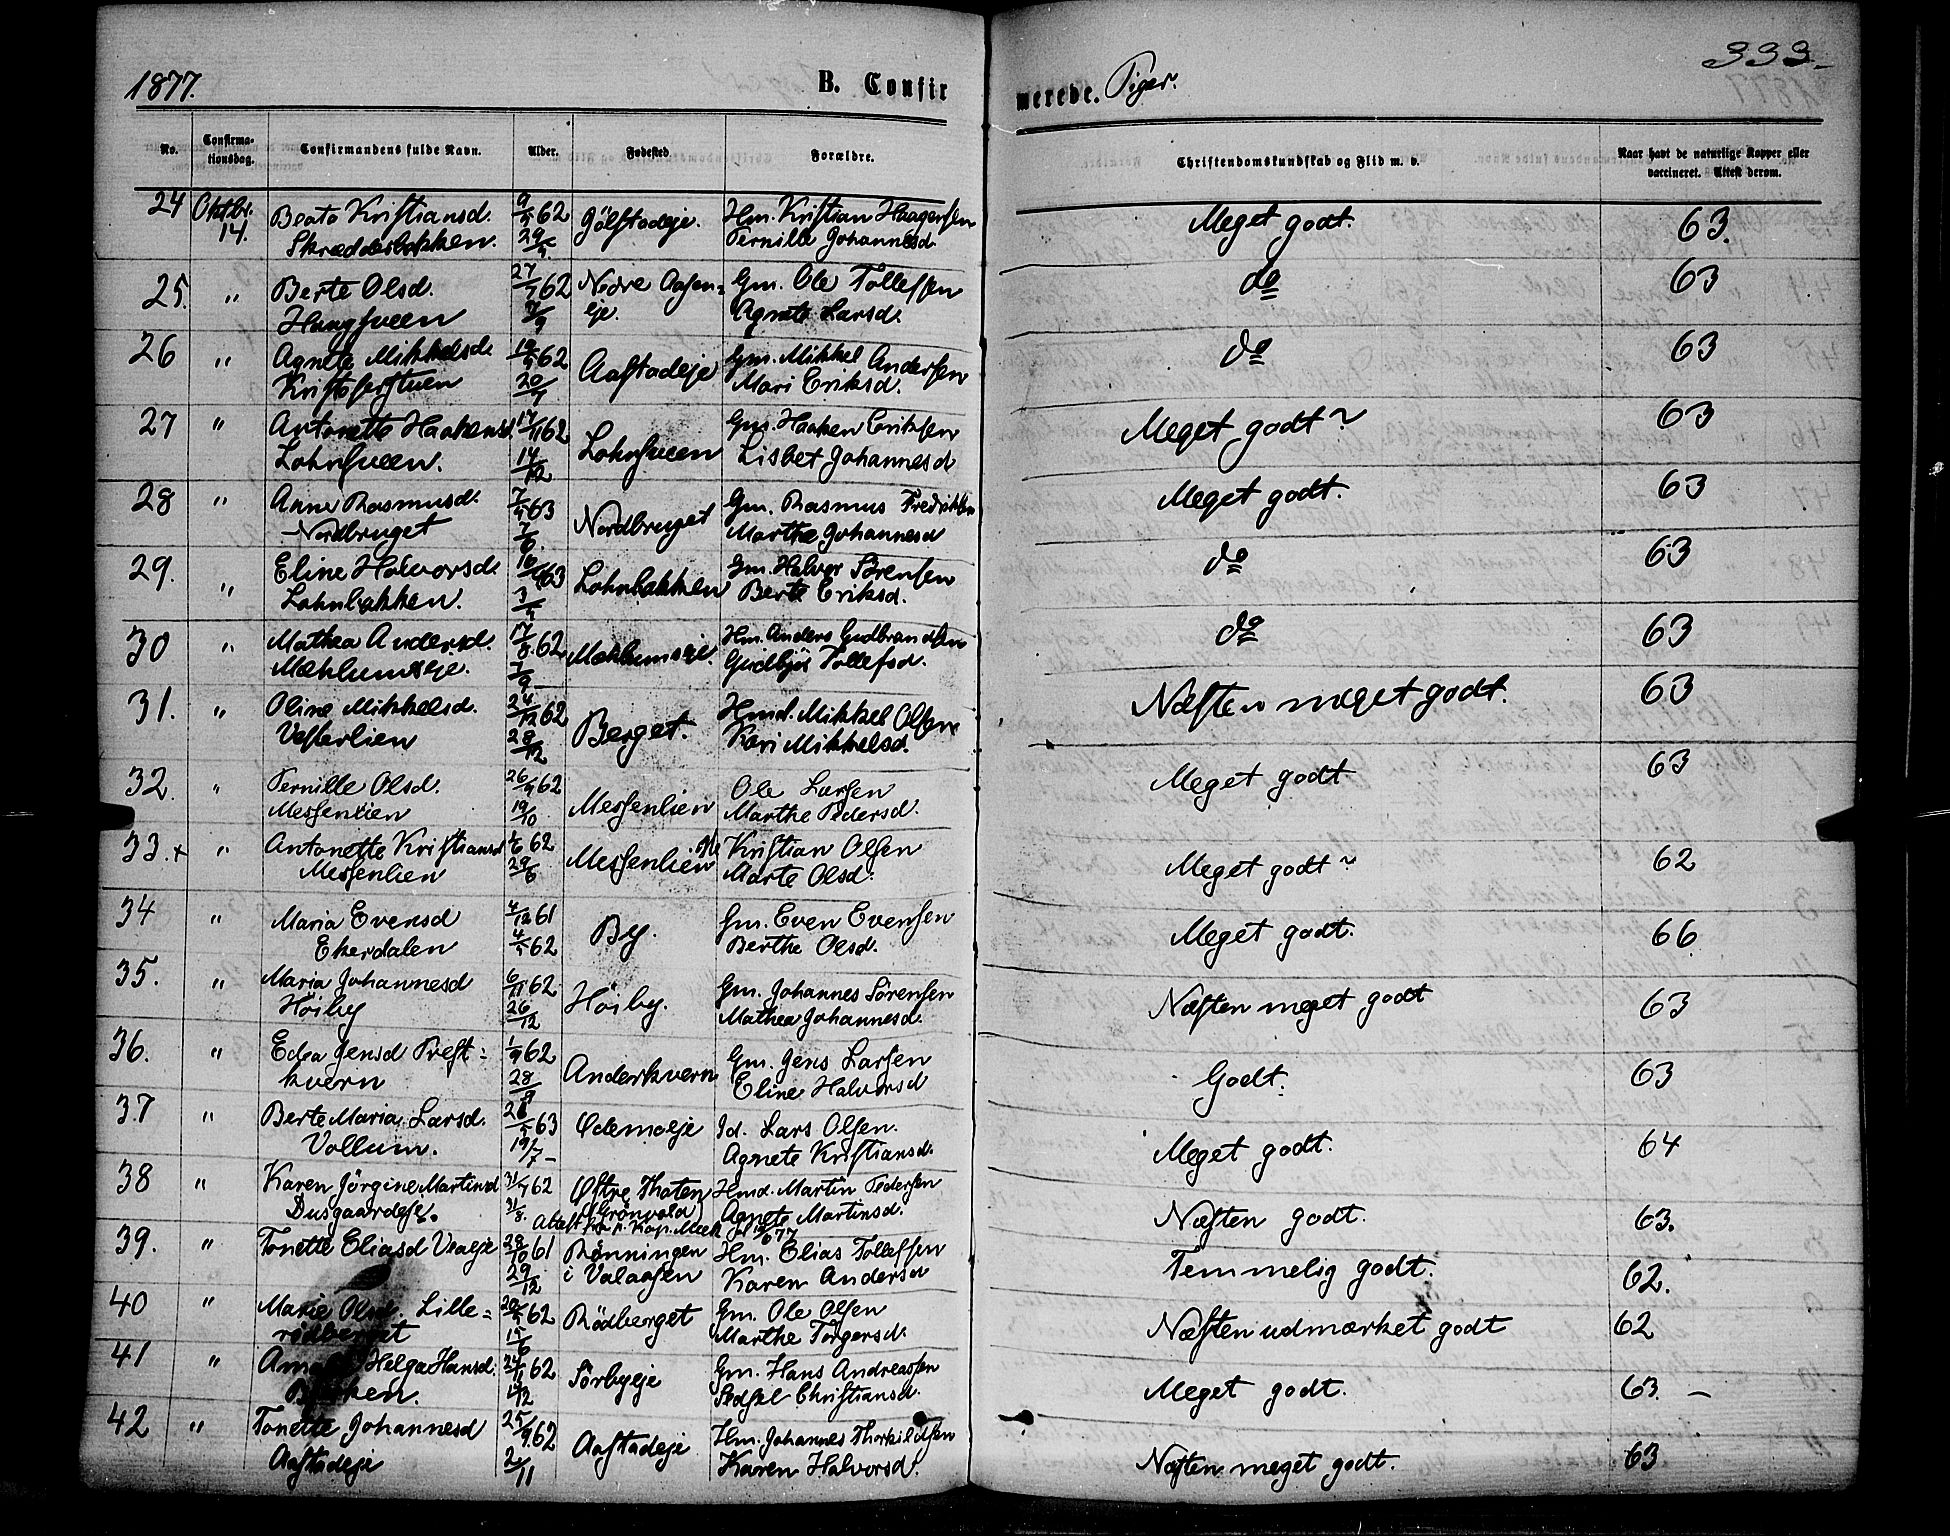 1877. B. Confirmerede. Piger. 333.
No. Confirmationsdag. Confirmandens fulde Navn. Alder. Fødested. Forældre. Christendomskundskab og Flid m. v. Naar havt de naturlige Kopper eller vaccineret. Attest derom.
24 Oktbr. 14. Beate Kristiansd. 9/5 62 Gölstadeje. Hm. Kristian Haagensen Meget godt. 63.
Skrædderbakken. 29/5 Pernille Johannesd.
25. " Berte Olsd. 27/7 62 Nedre Aasen= Gm. Ole Tollefsen do 63
Haugsveen 9/9 eje. Agnete Larsd.
26 " Agnete Mikkelsd. 62 Aastadeje Gm. Mikkel Andersen do 63
Kristoferstuen 20/7 Mari Eriksd.
27 " Antonette Haakensd. 17/11 62 Lohnsveen Gm. Haaken Eriksen Meget godt 63
Lohnsveen. 14/12 Lisbet Johannesd
28 " Anne Rasmusd. 63 Nordbruget Gm. Rasmus Fredriksen Meget godt. 63
Nordbruget 7/6 Marthe Johannesd
29. " Eline Halvorsd. 63 Lohnbakken Gm. Halvor Sörensen do 63
Lohnbakken. Berte Eriksd.
30 " Mathea Andersd. 17/8 62 Mæhlumseje. Hm. Anders Gudbrandsen do 63
Mæhlumseje. 7/9 Gudbjör Tollefsd.
31. " Oline Mikkelsd. 24/12 62 Berget. Hmd. Mikkel Olsen Næsten meget godt. 63
Vesterlien 28/12 Kari Mikkelsd.
32. " Pernille Olsd. 26/9 62 Messenlien Ole Larsen Meget godt 63
Messenlien 19/10 Marthe Pedersd.
33.+ " Antonette Kristiansd 62 Messenlien Kristian Olsen Meget godt 62
Messenlien 29/6 Marte Olsd.
34 " Maria Evensd 4/12 61 By. Gm. Even Evensen Meget godt. 66
Ekerdalen 62 Berthe Olsd.
35. " Maria Johannesd 6/11 62 Höiby. Gm. Johannes Sörensen Næsten meget godt 63
Höiby 26/12 Mathea Johannesd.
36. " Edea Jensd Prest= 1/9 62 Anderkvern Gm. Jens Larsen Godt. 63
kvern 28/9 Eline Halvorsd
37 " Berte Maria Larsd. 63 Ødemoeje Id. Lars Olsen. Meget godt. 64
Vollum. 19/7 Agnete Kristiansd.
38 " Karen Jörgine Martinsd 62 Østre Thoten Hmd. Martin Pedersen Næsten godt. 63.
Dusgaardeje. 31/8. (Grönvold) Agnete Martinsd.
Attest fra p. Kap.
39. " Tonette Eliasd Vealeje 28/10 61 Rønningen Hm. Elias Tollefsen Temmelig godt. 62.
29/12 i Valaasen Karen Andersd
40 " Marie Olsd. Lille= 62 Rödberget Gm. Ole Olsen Næsten udmærket godt 62
rödberget 15/6 Marthe Torgersd.
41 " Helga Hansd. 24/11 62 Sörbyeje Gm. Hans Andreassen Meget godt. 63. –
Sedsel Christiansd.
42 " Tonette Johannesd 25/9 62 Aastadeje Hm. Johannes Thorkildsen Næsten meget godt. 63
Aastadeje 2/11 Karen Halvorsd.